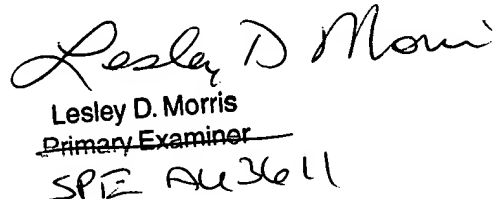 Lesley D Morris
Lesley D. Morris
Primary Examiner
SPE AU 3611